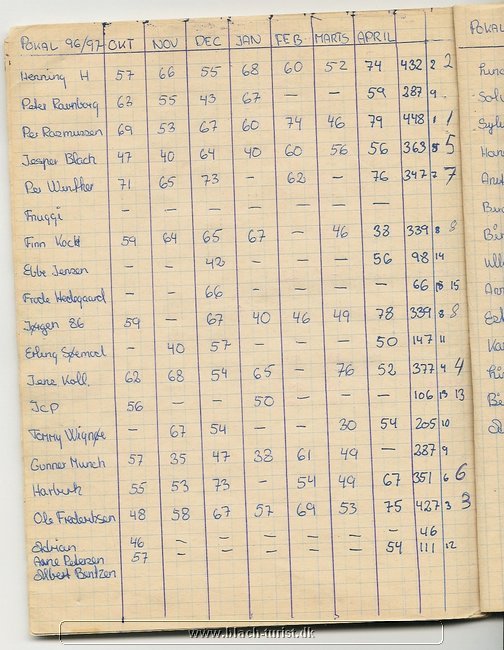 POKAL 96/97 OKT NOV DEC JAN FEB MARTS APRIL
Henning H 57 66 55 68 60 52 74 432 2 2
Peter Ravnborg 63 55 43 67 — — 59 287 9
Per Rasmussen 69 53 67 60 74 46 79 448 1 1
Jesper Blach 47 40 64 40 60 56 56 363 5 5
Per 71 65 73 — 62 — 76 347 7 7
Fruggi — — — — — — —
Finn Kock 59 64 65 67 — 46 38 339 8 8
Ebbe Jensen — — 42 — — — 56 98 14
Frode Hedegaard — — 66 — — — — 66 15
Jørgen 86 59 — 67 40 46 49 78 339 8 8
Erling — 40 57 — — — 50 147 11
Jens Koll. 62 68 54 65 — 76 52 377 4 4
JCP 56 — — 50 — — — 106 13 13
Tommy — 67 54 — — 30 54 205 10
Gunner Munch 57 35 47 38 61 49 — 287 9
55 53 73 — 54 49 67 351 6 6
Ole Frederiksen 48 58 67 57 69 53 75 427 3 3
Adrian 46 — — — — — — 46
Arne Petersen 57 — — — — — 54 111 12
Albert Bentzen
POKAL
www.blach-turist.dk